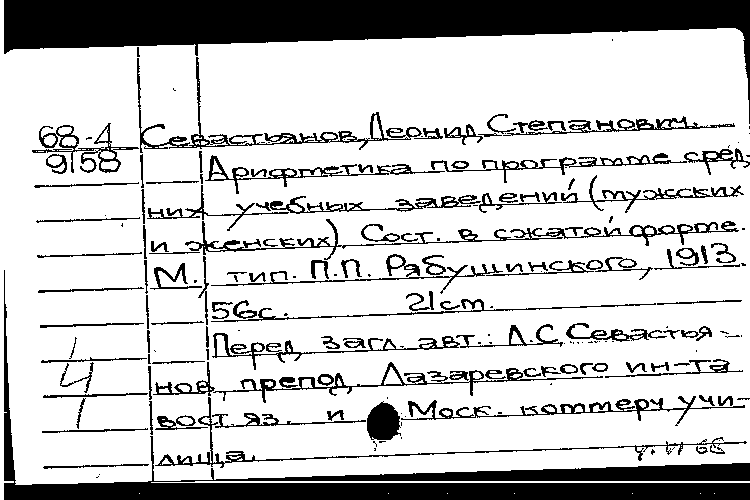 68-4 Севастьянов, Леонид Степанович.
9158 Арифметика по программе сред-
них учебных заведений (мужских
и женских). Сост. в сжатой форме.
М., тип. П.П. Рябушинского, 1913.
56с. 21см.
Перед загл. авт.: Л.С. Севастья-
нов, препод. Лазаревского ин-та
вост. яз. и Моск. коммерч. учи-
лища.
4
4.VI 68